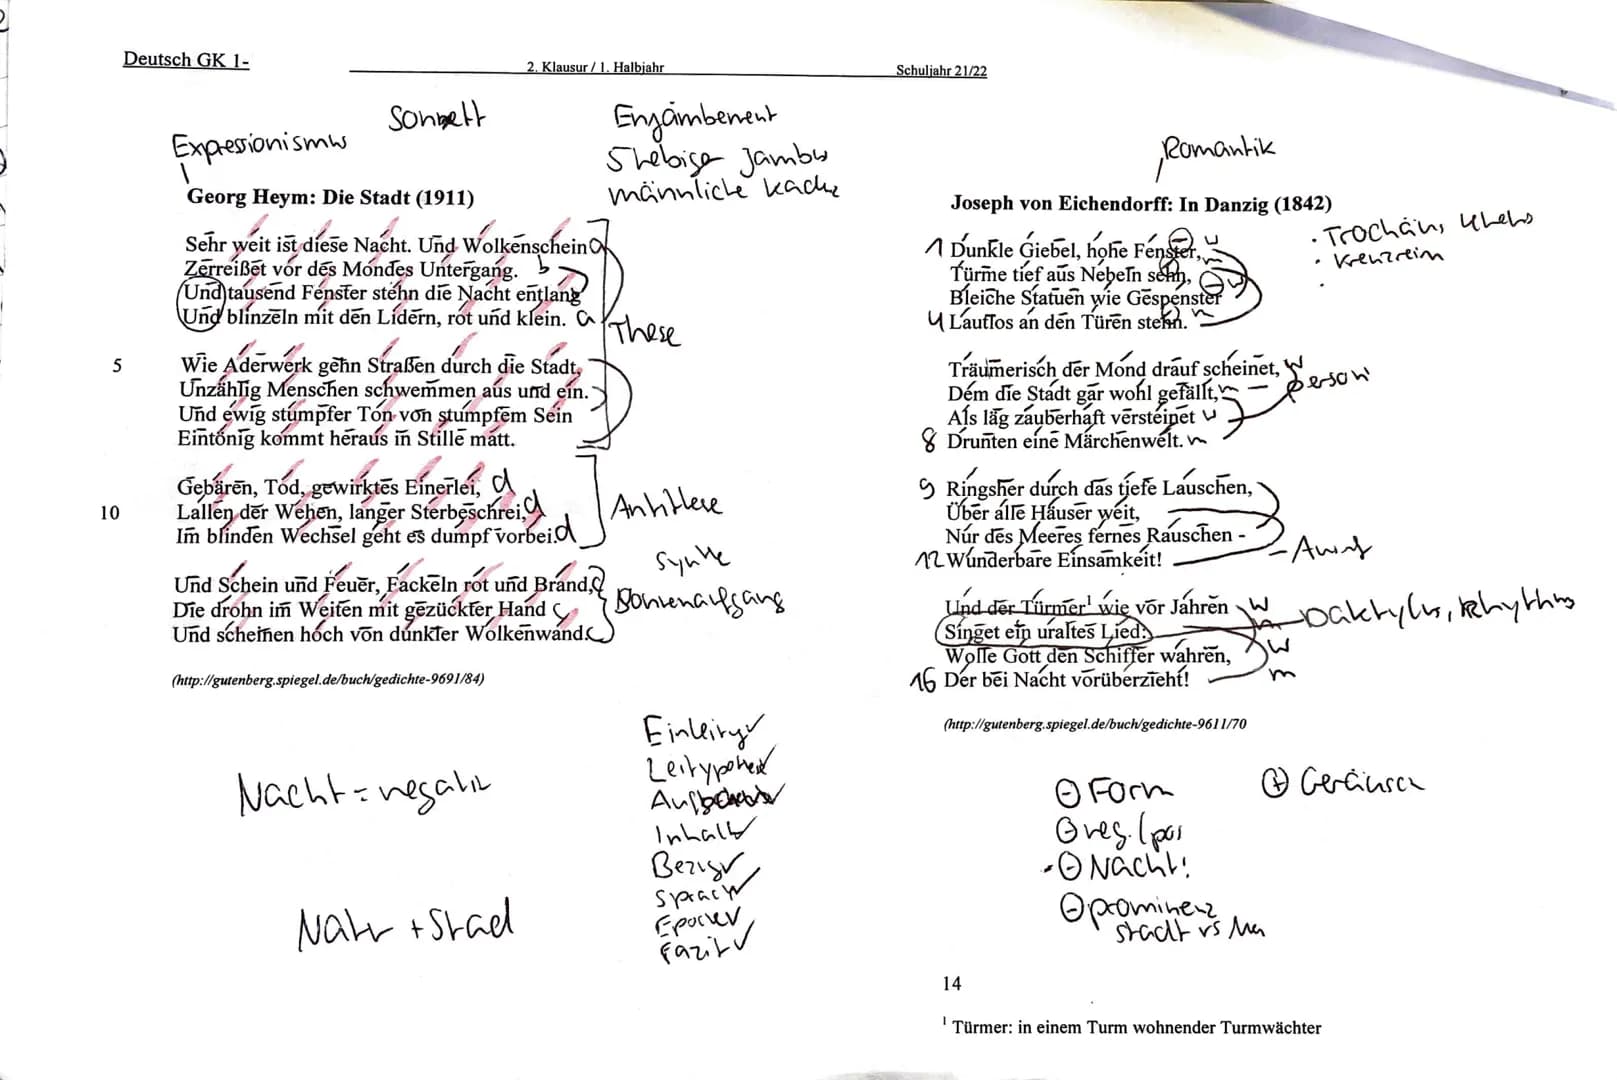 Deutsch GK 1-
2. Klausur / 1. Halbjahr
Schuljahr 21/22
Sonnett
Expressionismus
Enjambement
5hebiger Jambus
männliche Kadenz
Georg Heym: Die Stadt (1911)
Sehr weit ist diese Nacht. Und Wolkenschein a
Zerreißet vor des Mondes Untergang. b
Und tausend Fenster stehn die Nacht entlang
Und blinzeln mit den Lidern, rot und klein. a
These
5 Wie Aderwerk gehn Straßen durch die Stadt,
Unzählig Menschen schwemmen aus und ein.
Und ewig stumpfer Ton von stumpfem Sein
Eintönig kommt heraus in Stille matt.
Gebären, Tod, gewirktes Einerlei, d
10 Lallen der Wehen, langer Sterbeschrei, d
Im blinden Wechsel geht es dumpf vorbei. d
Antithese
Und Schein und Feuer, Fackeln rot und Brand, c
Die drohn im Weiten mit gezückter Hand c
Und scheinen hoch von dunkler Wolkenwand. c
Synthe
Sonnenaufgang
(http://gutenberg.spiegel.de/buch/gedichte-9691/84)
Nacht = negativ
Natur + Stad
Einleitung ✓
Leithypothese ✓
Inhalt ✓
Bezug ✓
Sprach ✓
Epoche ✓
Fazit ✓
Romantik
Joseph von Eichendorff: In Danzig (1842)
· Trochäus, 4heb
· Kreuzreim
·
1 Dunkle Giebel, hohe Fenster, w
Türme tief aus Nebeln sehn, m
Bleiche Statuen wie Gespenster w
4 Lautlos an den Türen stehn. m
Träumerisch der Mond drauf scheinet, w
Dem die Stadt gar wohl gefällt, m
Als läg zauberhaft versteinet w
8 Drunten eine Märchenwelt. m
Person
9 Ringsher durch das tiefe Lauschen,
Über alle Häuser weit,
Nur des Meeres fernes Rauschen -
12 Wunderbare Einsamkeit!
- Ausruf
Und der Türmer¹ wie vor Jahren w
Singet ein uraltes Lied: m
Wolle Gott den Schiffer wahren, w
16 Der bei Nacht vorüberzieht! m
Daktylus, Rhythmus
(http://gutenberg.spiegel.de/buch/gedichte-9611/70
⊖ Form
⊖ neg. / pos
⊖ Nacht!
⊖ prominenz
stadt vs
⊕ Geräusch
14
¹ Türmer: in einem Turm wohnender Turmwächter